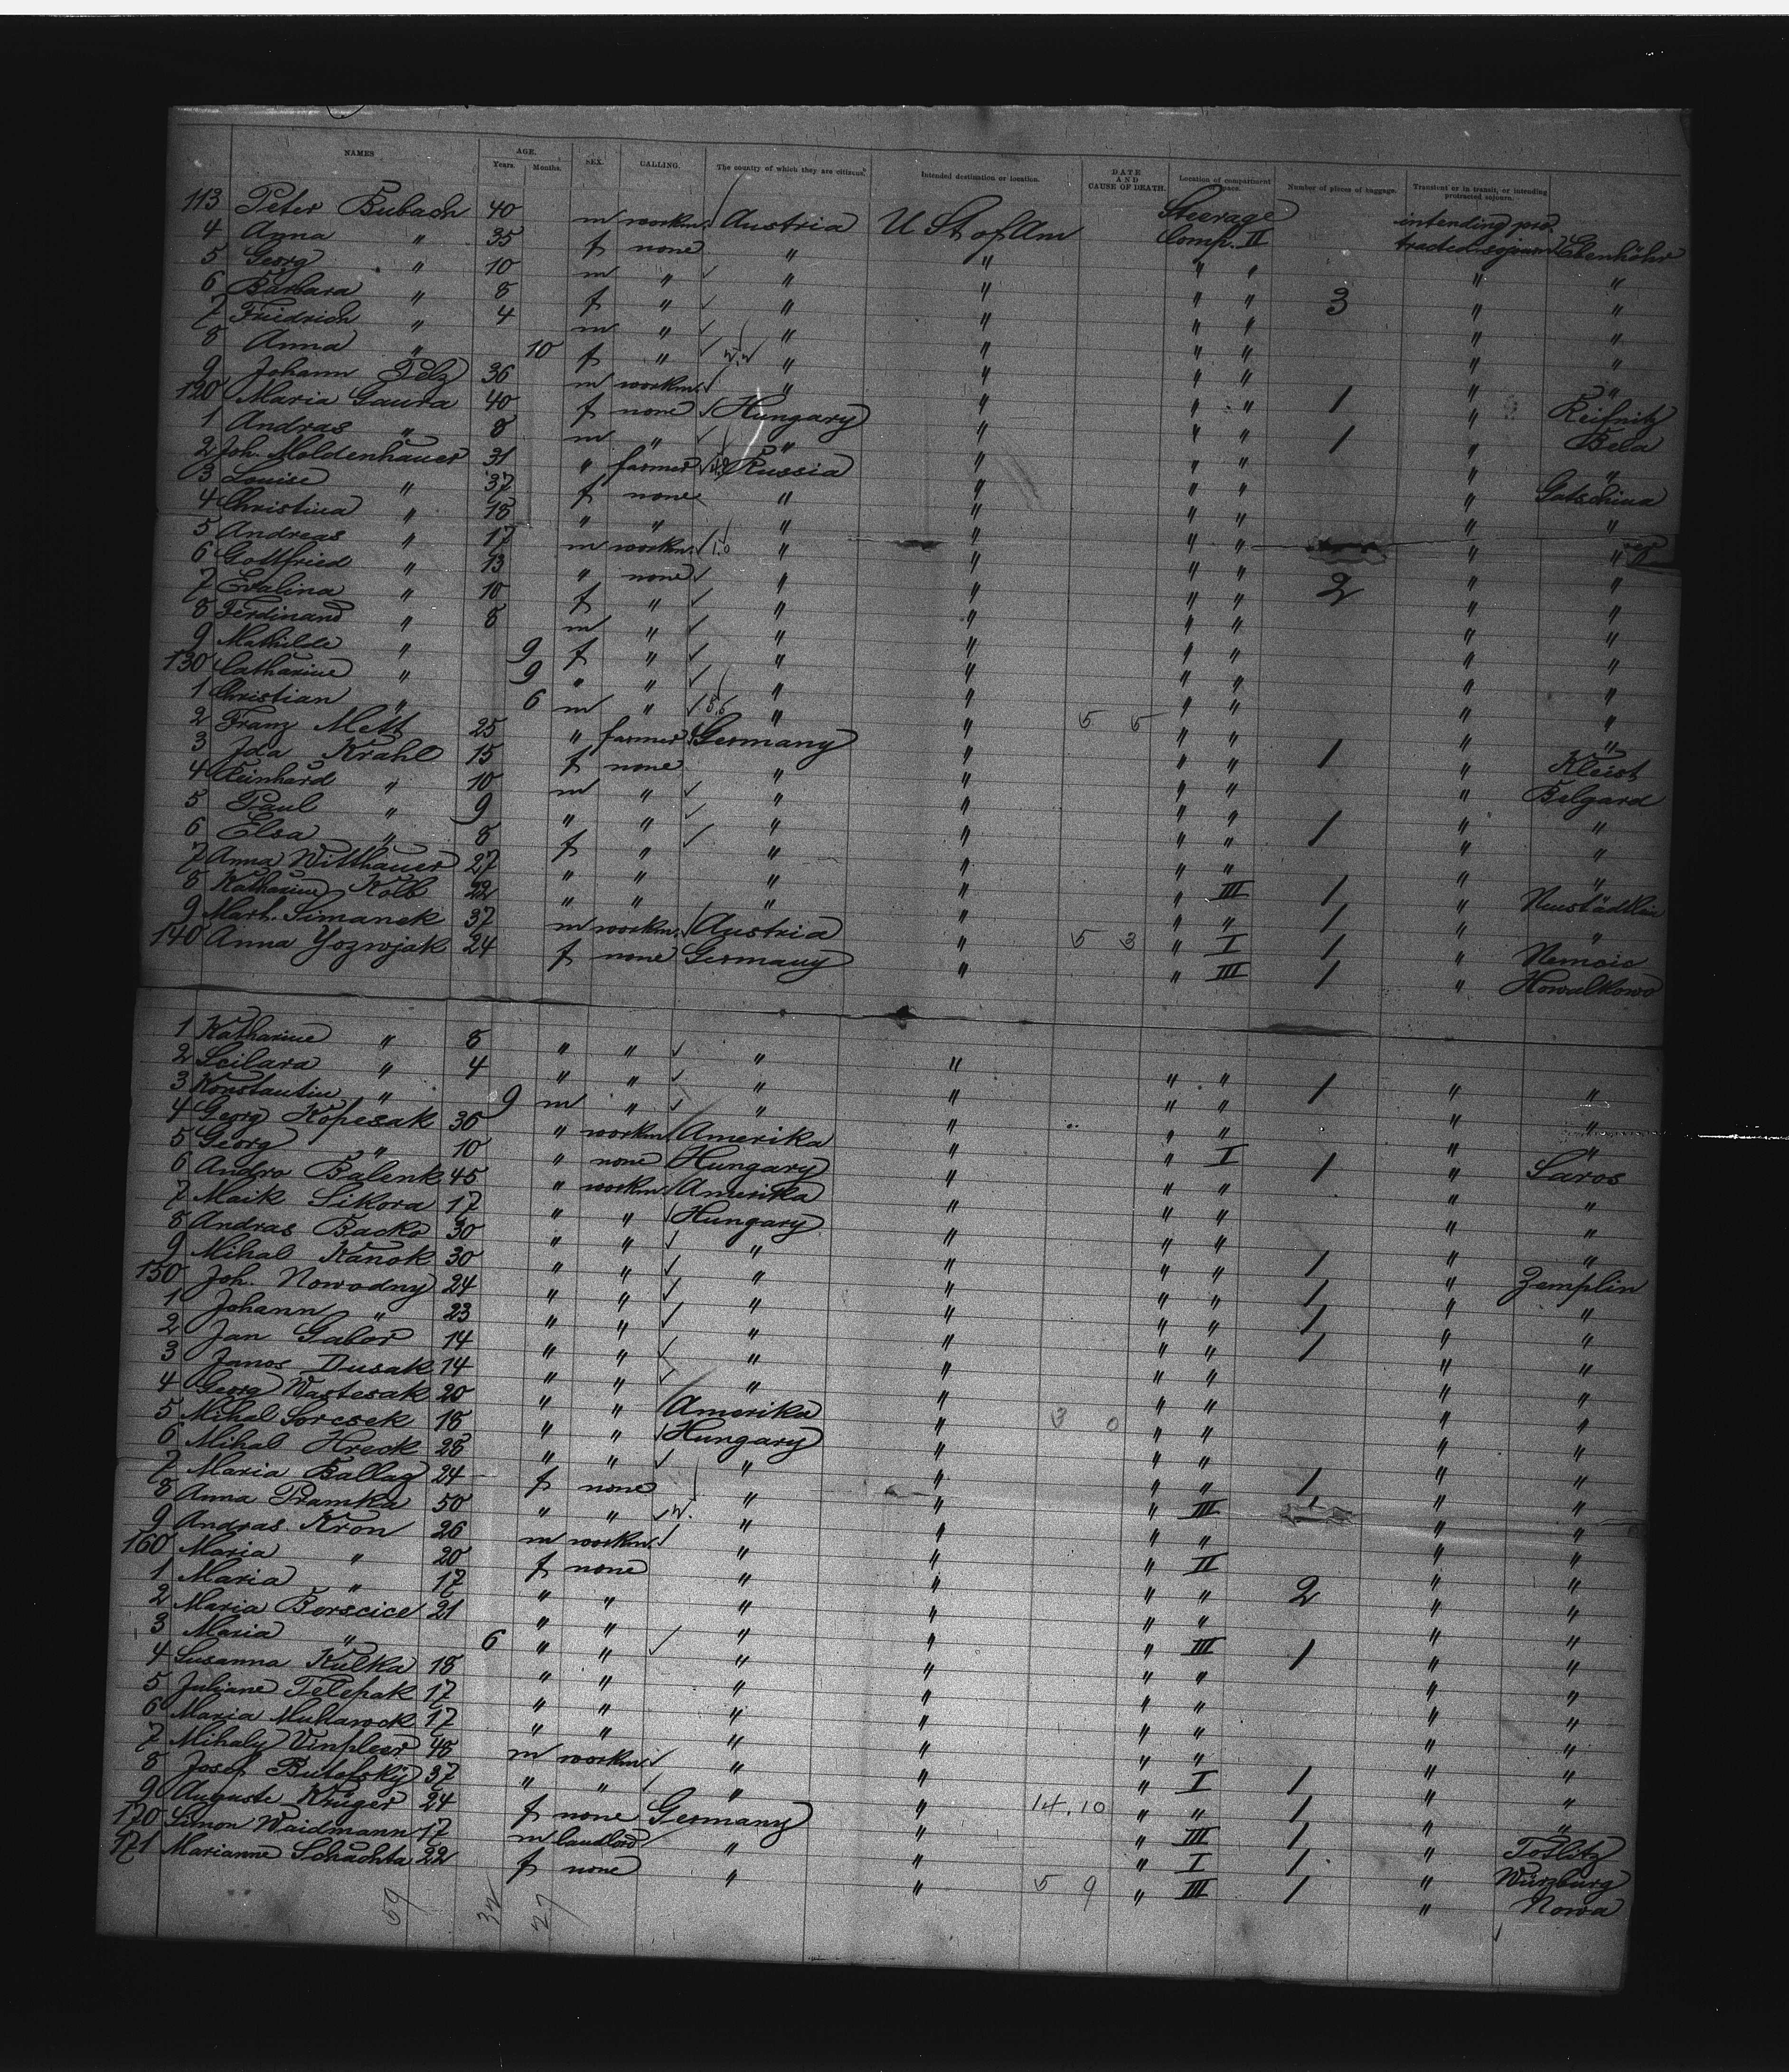 NAMES AGE. Years. Months. SEX. CALLING. The country of which they are citizens. Intended destination or location. DATE AND CAUSE OF DEATH. Location of compartment space. Number of pieces of baggage. Transient or in transit, or intending protracted sojourn.
113 Peter Bubach 40 m workm. Austria U St of Am Steerage Comp. II intending pro-tracted sojourn
4 Anna " 35 f none " " " " "
5 Georg " 10 m " " " " " 3 " "
6 Barbara " 8 f " " " " " " "
7 Friedrich " 4 m " " " " " " "
8 Anna " 10 f " " " " " " "
9 Johann Pelz 36 m workm. " " " " 1 " Reifnitz
120 Maria Gaura 40 f none Hungary " " " 1 " Bela
1 Andras " 8 m " " " " " " "
2 Joh. Moldenhauer 31 " farmer Russia " " " " Gatschina
3 Louise " 37 f none " " " " " "
4 Christina " 18 " " " " " " " "
5 Andreas " 17 m workm. " " " " " "
6 Gottfried " 13 " none " " " " 2 " "
7 Evalina " 10 f " " " " " " "
8 Ferdinand " 8 m " " " " " " "
9 Mathilde " 9 f " " " " " " "
130 Catharine " 9 " " " " " " " "
1 Christian " 6 m " " " " " " "
2 Franz Mett 25 " farmer Germany " 5 5 " " 1 " Kleist
3 Ida Krahl 15 f none " " " " " Belgard
4 Reinhard " 10 m " " " " " " "
5 Paul " 9 " " " " " " 1 " "
6 Elsa " 8 f " " " " " " "
7 Anna Witthauer 27 " " " " " III 1 "
8 Katharine Kolb 22 " " " " " " 1 " "
9 Mart. Simanek 37 m workm. Austria " 5 3 " I 1 "
140 Anna Yozwjak 24 f none Germany " " III 1 "
1 Katharine " 8 " " " " " " 1 " "
2 " 4 " " " " " " " "
3 Konstantin " 9 m " " " " " " "
4 Georg Kopesak 36 " workm Amerika " " I 1 " Saros
5 Georg " 10 " none Hungary " " " " "
6 Andro Balenk 45 " workm Amerika " " " " "
7 Maik Sikora 17 " " Hungary " " " 1 " "
8 Andras Backo 30 " " " " " " 1 " Zemplin
9 Mihal Kanok 30 " " " " " " 1 " "
150 Joh. Nowodny 24 " " " " " " 1 " "
1 Johann " 23 " " " " " " " "
2 Jan Gabor 14 " " " " " " " "
3 Janos Dusak 14 " " " " " " " "
4 Georg Wastesak 20 " " Amerika " 3 0 " " " "
5 Mihal Sorcsek 18 " " Hungary " " " " "
6 Mihal Hreck 28 " " " " " " 1 " "
7 Maria Ballag 24 f none " " " III 1 " "
8 Anna Pramka 50 " " " " " " " "
9 Andras Kron 26 m workm. " " " II " "
160 Maria " 20 f none " " " " 2 " "
1 Maria " 17 " " " " " " " "
2 Maria Borscice 21 " " " " " III 1 " "
3 Maria " 6 " " " " " " " "
4 Susanna Kulka 18 " " " " " " " "
5 Juliane Telepak 17 " " " " " " " "
6 Maria 17 " " " " " " " "
7 Mihaly 48 m workm. " " " I 1 " "
8 Josef 37 " " " " " " 1 " "
9 Auguste Krüger 24 f none Germany " 14.10 " III 1 "
170 Simon Waidmann 17 m landlord " " " I 1 " Würzburg
171 Marianne Schachta 22 f none " " 5 9 " III 1 " Nowa
59 32 27